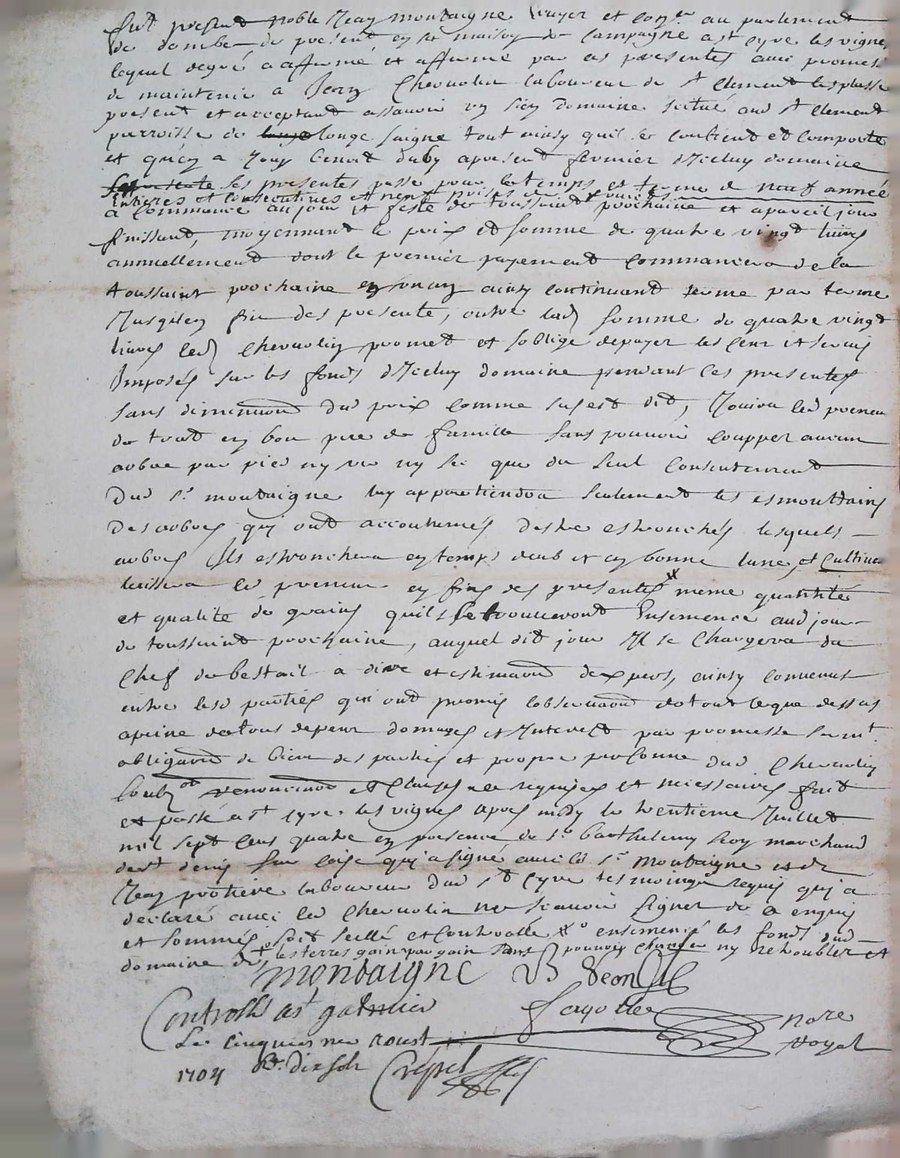 fut present noble Jean montaigne Escuyer et con.er au parlement
de dombe de present en sa maison de Campagne a st cyre les vignes
lequel degré a affermé et afferme par ces presentes avec promesse
de maintenir a Jean Chevrolin laboureur de st Clement
present et acceptant assavoir un sien domaine scitué aud st Clement
parroisse de longe saigne tout ainsy quil se contient et comporte
et qu'en a Jouy benoit duby apresent fermier d'Iceluy domaine
les presentes passé pour le temps et terme de neuf année
Entieres et consecutives et neuf prises de
a commancé au jour et feste de toussaint prochaine et apareil jour
finissant, moyennant le prix et somme de quatre vingt livres
annuellement dont le premier payement commancera de la
toussaint prochaine en un an ainsy continuant terme par terme
Jusqu'en fin des presente, outre lad somme de quatre vingt
livres led Chevrolin promet et soblige depayer les cens et servis
Imposés sur les fonds d'Iceluy domaine pendant ces presentes
sans diminution du prix comme susest dit, Jouira led preneur
du tout en bon pere de famille sans pouvoir coupper aucun
arbre par pied ny vif ny sec que du seul consentement
Dud sr montaigne luy appartiendra seulement les esmonttains
des arbres qui ont accoutumés destre estronchés lesquels
arbres Ils estronchera en temps deub et en bonne lune, et Cultivé
laissera led preneur en fins des presentes x meme quantitée
et qualité de grains quils se trouveront Ensemencé aud jour
de toussaint prochaine, auquel dit jour Il se chargera du
Chef de bestail a dire et estimation dexpers, ainsy convenus
entre lesd parties qui ont promis lobservation de tout ceque dessus
apeine de tous depens domages et Interest par promesse serment
obligation de biens des parties et propre personne dud Chevrolin
renonciation et clauses a ce requises et necessaires fait
et passé a st cyre les vignes apres midy le ventieme Juillet
mil sept cens quatre en presence de sr barthelemy Roy marchand
de st denis sur coise qui a signé avec led sr montaigne et de
Jean laboureur dud st Cyre tesmoings requis qui a
declaré avec led Chevrolin ne scavoir signer de ce enquis
et sommés soit scellé et controllé xo ensemencé les fonds dud
domaine les terres gain par gain sans pouvoir ny retroubler et
montaigne B Deon
Controllé a st galmier
Le cinquiesme aoust
1704 R. dix sols
Crepet
notre
royal